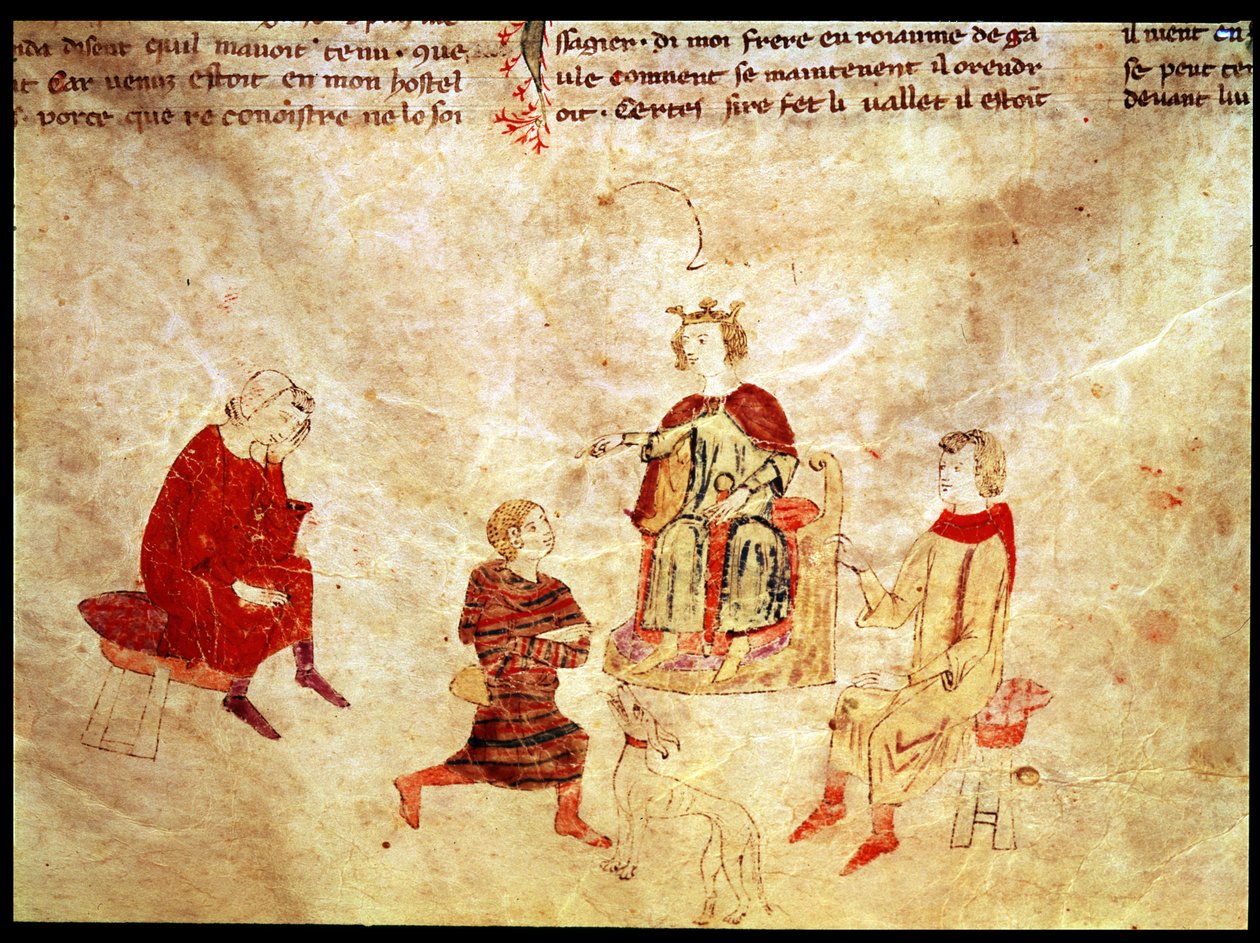 disent quil mauoit tenu. Que
Car venuz estoit en mon hostel
porce que reconoistre ne le soi
ssagier. di moi frere eu roiaume de ga
ule comment se maintenent il orendr
oit. Certes sire fet li vallet il estoit
il
se peut
deuant lui